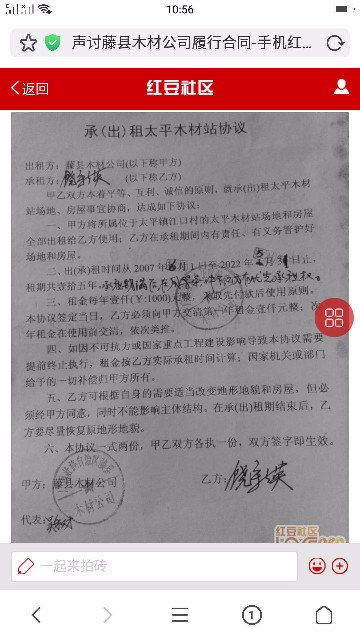 10:56
声讨藤县木材公司履行合同-手机红
返回
红豆社区
承(出)租太平木材站协议
出租方：藤县木材公司(以下称甲方)
承租方：(以下称乙方)
甲乙双方本着平等、互利、诚信的原则，就承(出)租太平木材
站场地、房屋事宜协商，达成如下协议；
一、甲方将所属位于太平镇江口村的太平木材站场地和房屋
全部出租给乙方使用；乙方在承租期间内有责任、有义务管护好
场地和房屋。
二、出(承)租时间从2007年 月1日至2022年5月31日止，
租期共壹拾五年。
三、租金每年壹仟(Y:1000)元整，采取先付款后使用原则。
本协议签定当日，乙方必须向甲方交清第一年租金壹仟元整；次
年租金在使用前交清，依次类推。
四、如因不可抗力或国家重点工程建设影响导致本协议需要
提前终止执行，租金按乙方实际承租时间计算；国家机关或部门
给予的一切补偿归甲方所有。
五、乙方可根据自身的需要适当改变地形地貌和房屋，但必
须经甲方同意，同时不能影响主体结构。在承(出)租期结束后，乙
方要尽量恢复原地形地貌。
六、本协议一式两份，甲乙双方各执一份，双方签字即生效。
甲方：藤县木材公司
乙方：
代表：
红豆社区
一起来拍砖
1